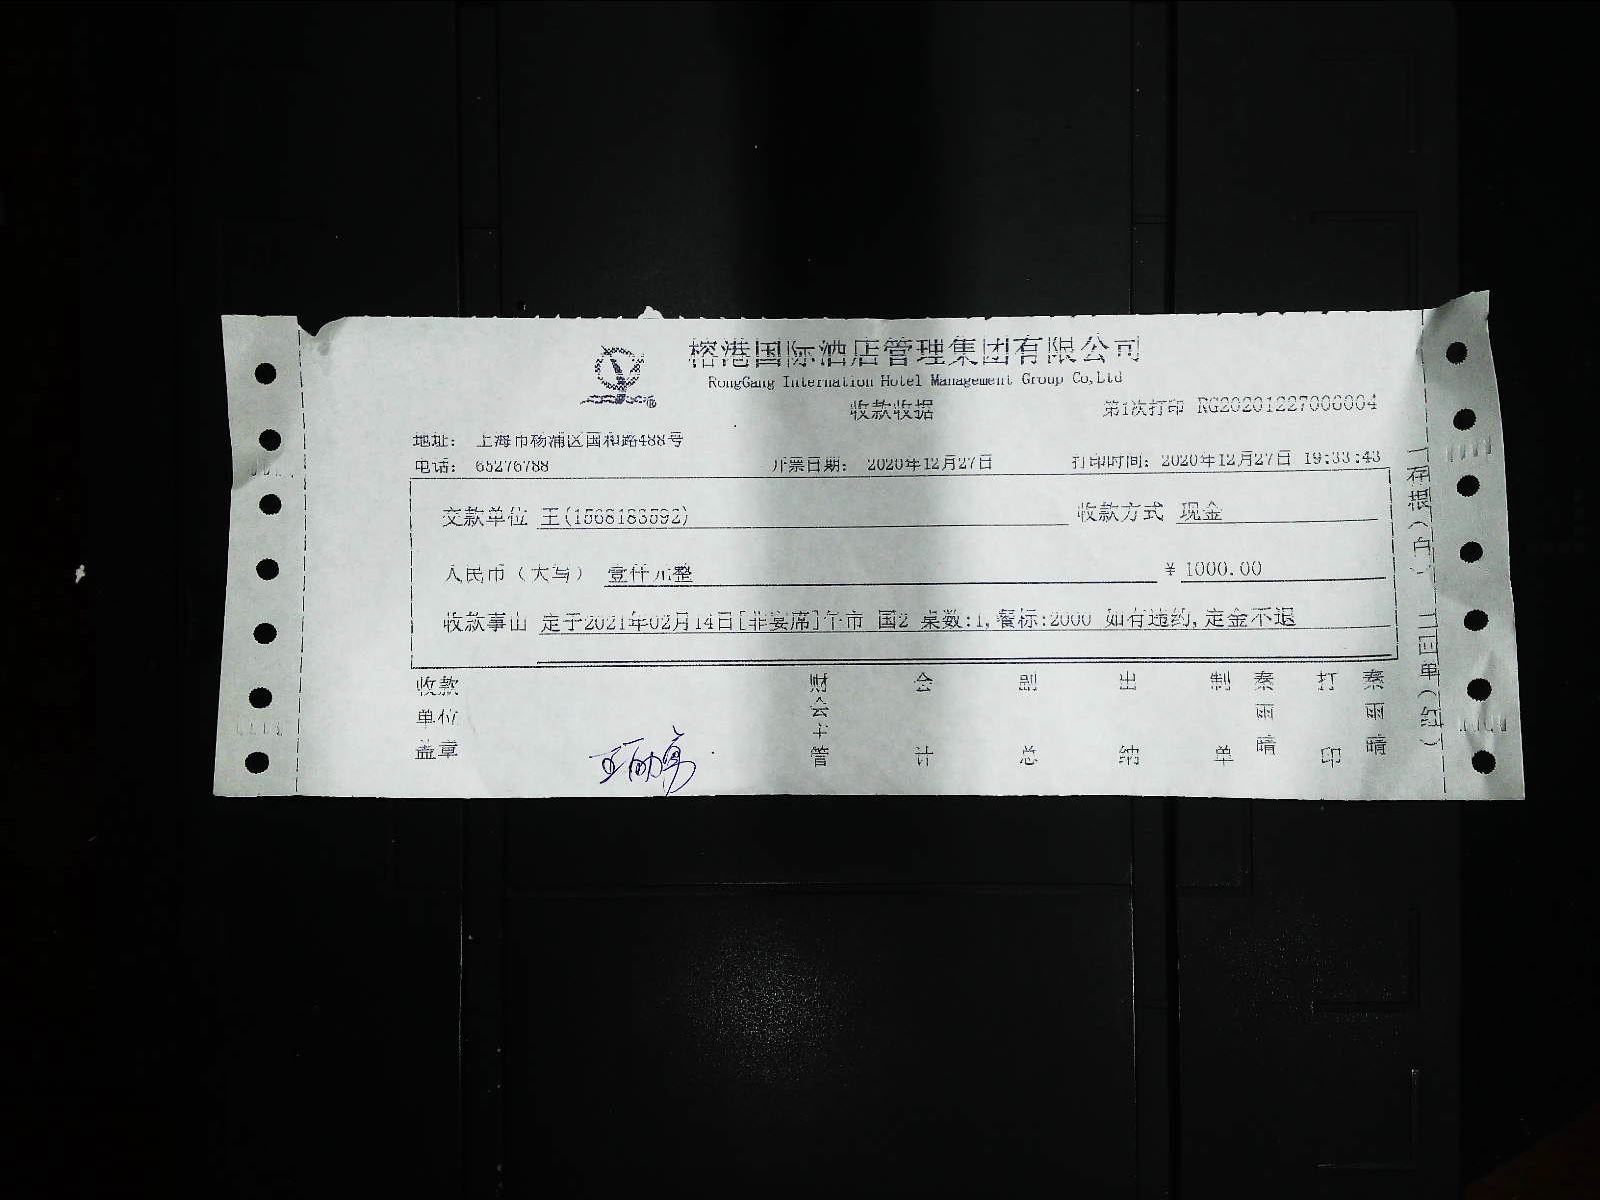 榕港国际酒店管理集团有限公司
RongGang Internation Hotel Management Group Co,Ltd
收款收据
第1次打印 RG20201227000004
地址: 上海市杨浦区国和路488号
电话: 65276788 开票日期: 2020年12月27日 打印时间: 2020年12月27日 19:33:43
交款单位 王(1568183592) 收款方式 现金
人民币(大写) 壹仟元整 ¥1000.00
收款事由 定于2021年02月14日[非宴席]午市 国2 桌数:1,餐标:2000 如有违约,定金不退
收款单位盖章
财会主管 会计 副总 出纳 制单 秦雨晴 打印 秦雨晴
一存根(白) 二回单(红)